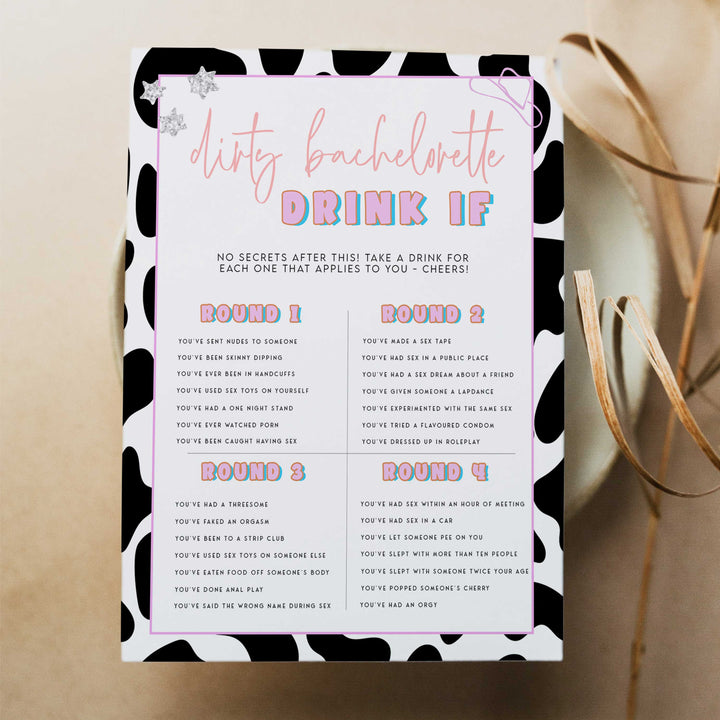 dirty bachelorette
DRINK IF
NO SECRETS AFTER THIS! TAKE A DRINK FOR
EACH ONE THAT APPLIES TO YOU - CHEERS!
ROUND 1
YOU'VE SENT NUDES TO SOMEONE
YOU'VE BEEN SKINNY DIPPING
YOU'VE EVER BEEN IN HANDCUFFS
YOU'VE USED SEX TOYS ON YOURSELF
YOU'VE HAD A ONE NIGHT STAND
YOU'VE EVER WATCHED PORN
YOU'VE BEEN CAUGHT HAVING SEX
ROUND 2
YOU'VE MADE A SEX TAPE
YOU'VE HAD SEX IN A PUBLIC PLACE
YOU'VE HAD A SEX DREAM ABOUT A FRIEND
YOU'VE GIVEN SOMEONE A LAPDANCE
YOU'VE EXPERIMENTED WITH THE SAME SEX
YOU'VE TRIED A FLAVOURED CONDOM
YOU'VE DRESSED UP IN ROLEPLAY
ROUND 3
YOU'VE HAD A THREESOME
YOU'VE FAKED AN ORGASM
YOU'VE BEEN TO A STRIP CLUB
YOU'VE USED SEX TOYS ON SOMEONE ELSE
YOU'VE EATEN FOOD OFF SOMEONE'S BODY
YOU'VE DONE ANAL PLAY
YOU'VE SAID THE WRONG NAME DURING SEX
ROUND 4
YOU'VE HAD SEX WITHIN AN HOUR OF MEETING
YOU'VE HAD SEX IN A CAR
YOU'VE LET SOMEONE PEE ON YOU
YOU'VE SLEPT WITH MORE THAN TEN PEOPLE
YOU'VE SLEPT WITH SOMEONE TWICE YOUR AGE
YOU'VE POPPED SOMEONE'S CHERRY
YOU'VE HAD AN ORGY